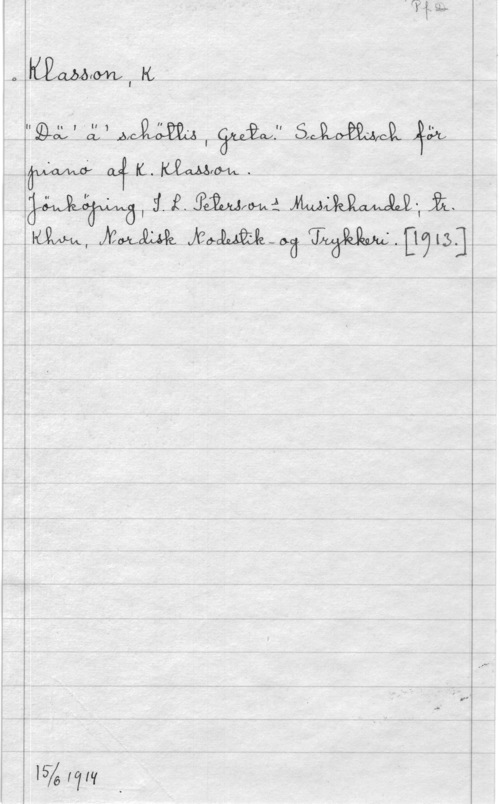 Pf. 2
Klasson, K
"Dä' ä' schöttis, Greta." Schottisch för
piano af K. Klasson.
Jönköping, J. L. Petersons Musikhandel; tr.
Khvn, Nordisk Nodestik- og Trykkeri. [1913.]
15/6 1914